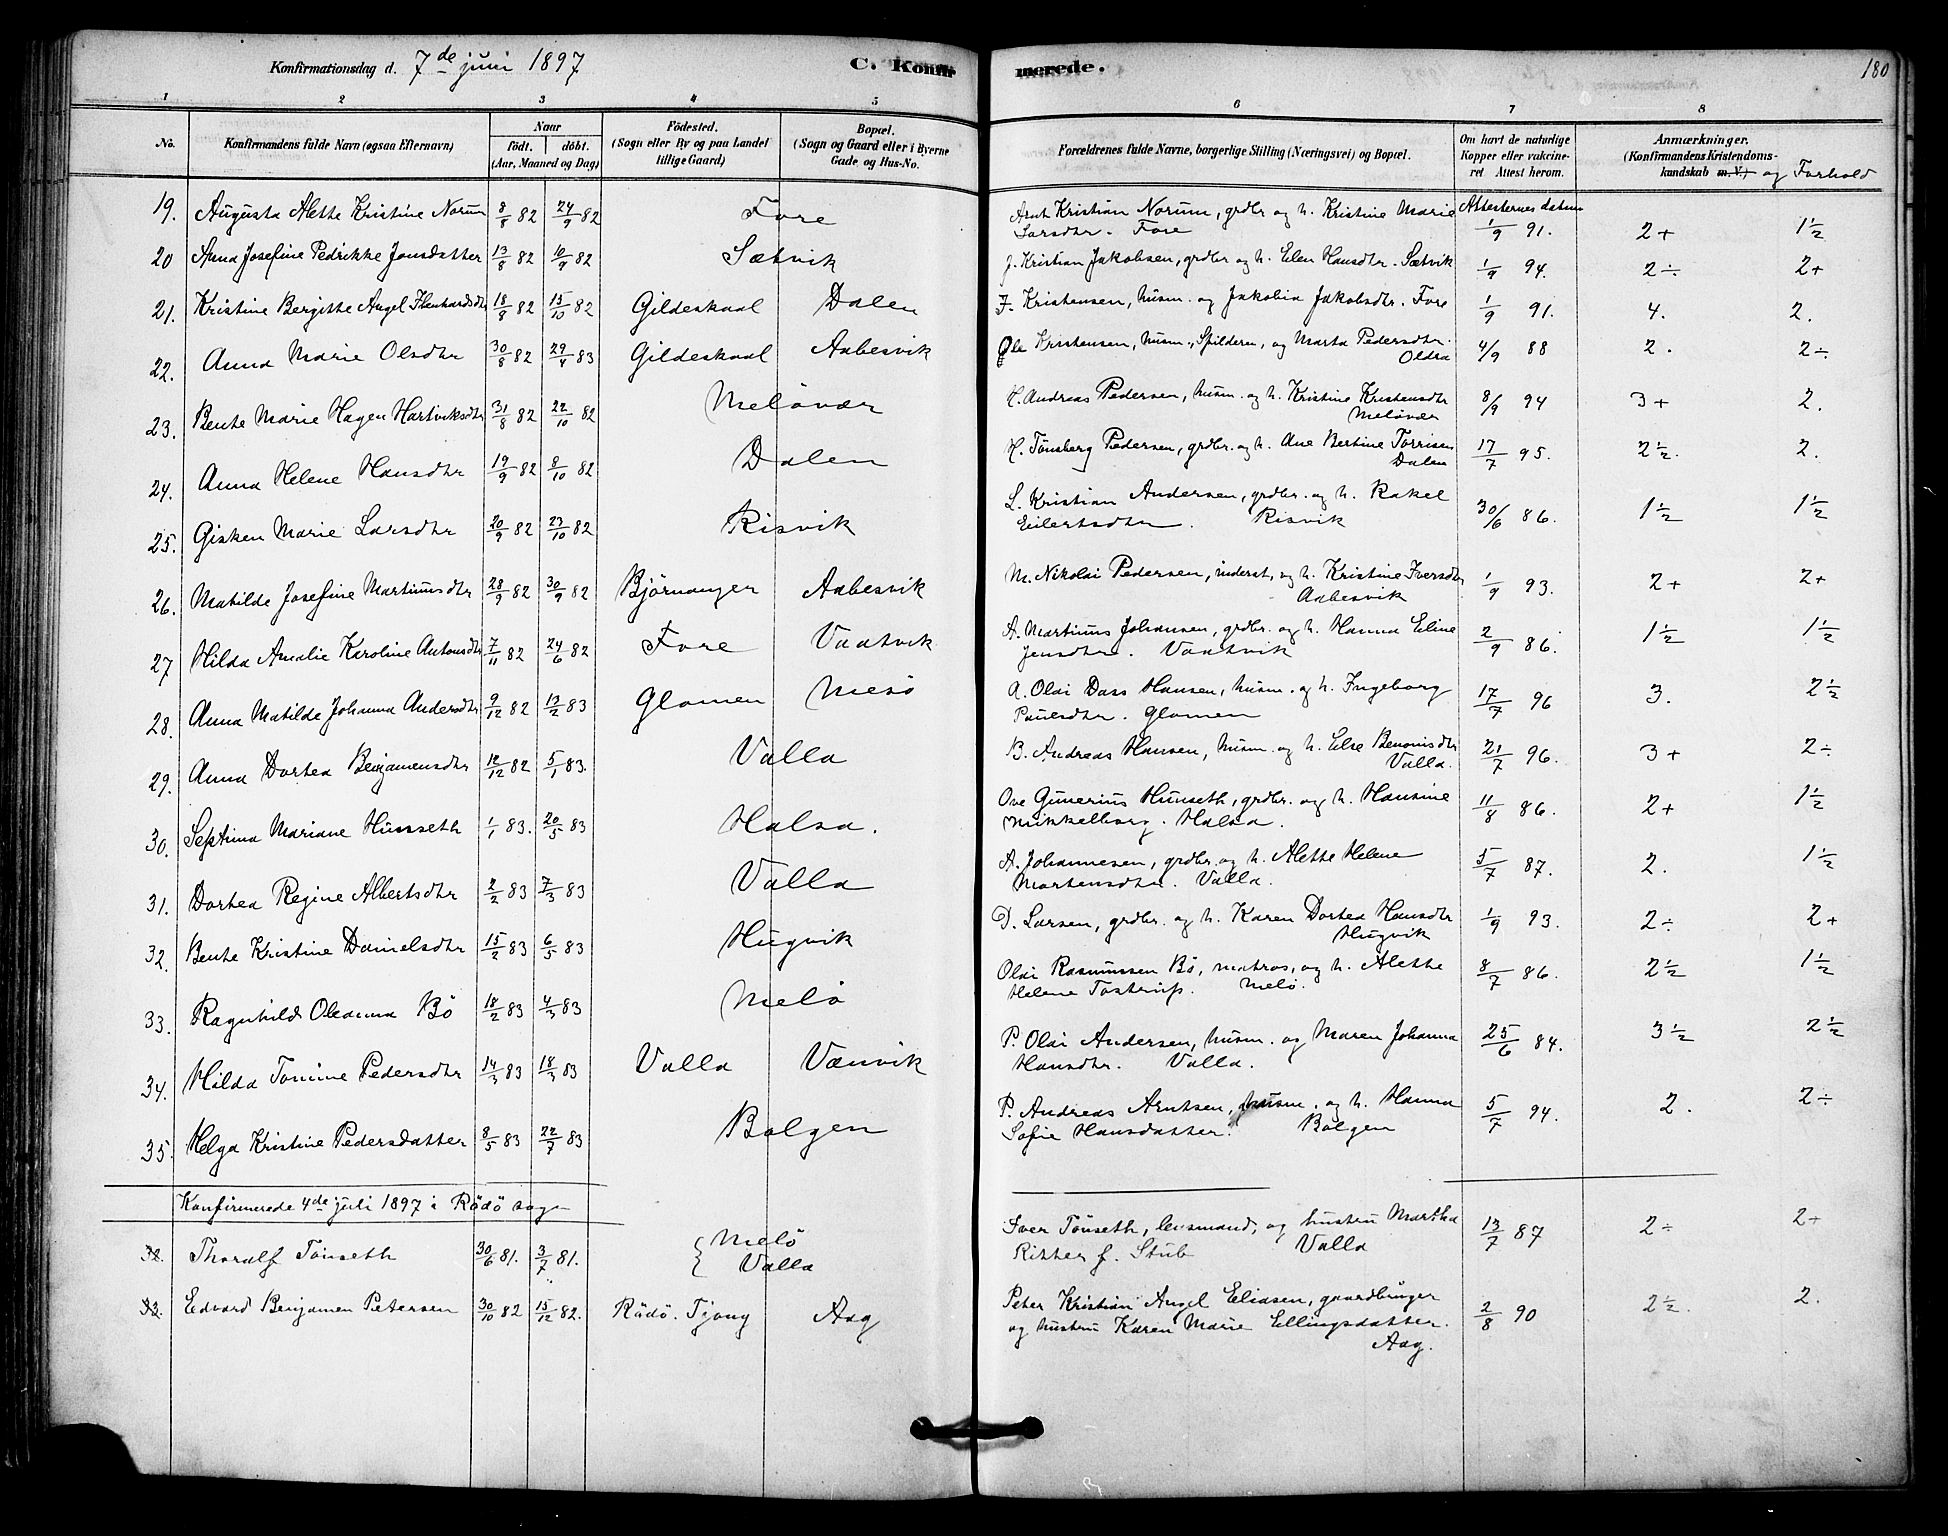 Konfirmationsdag d. 7de juni 1897 C. Konfir merede. 180
1 2 3 4 5 6 7 8
No. Konfirmandens fulde Navn (ogsaa Efternavn) Naar födt. döbt. (Aar, Maaned og Dag) Födested. (Sogn eller By og paa Landet tillige Gaard) Bopæl. (Sogn og Gaard eller i Byerne Gade og Hus-No. Forældrenes fulde Navne, borgerlige Stilling (Næringsvei) og Bopæl. Om havt de naturlige Kopper eller vakcineret Attest herom. Anmærkninger. (Konfirmandens Kristendomskundskab m. V.) og Forhold
19. Augusta Alette Kristine Norum 8/8 82 24/9 82 Fore Arnt Kristian Norum, grdbr og h. Kristine Marie Attesternes datum
Larsdtr. Fore 1/9 91. 2+ 1½
20 Anna Josefine Pedrikke Jonsdatter 13/8 82 10/9 82 Sætvik J. Kristian Jakobsen, grdbr og h. Elen Hansdtr. Sætvik 1/9 94. 2÷ 2+
21. Kristine Bergitte Angel 18/8 82 15/10 82 Gildeskaal Dalen Kristensen, husm. og Jakobia Jakobsdtr. Fore 1/9 91. 4. 2.
22. Anna Marie Olsdtr 30/8 82 29/4 83 Gildeskaal Aabesvik Ole Kristensen, husm., Spildern, og Marta Pedersdtr.
Oldra 4/9 88 2. 2÷.
23. Bente Marie Hagen Hartviksdtr 31/8 82 22/10 82 Melövær H. Andreas Pedersen, husm. og h. Kristine Kristensdtr
Melövær 8/9 94 3+ 2.
24. Anna Helene Hansdtr 19/9 82 8/10 82 Dalen H. Tönsberg Pedersen, grdbr. og h. Ane Bertine Torrisen
Dalen 17/7 95. 2½. 2.
25. Gisken Marie Larsdtr 20/9 82 23/10 82 Risvik L. Kristian Andersen, grdbr. og h. Rakel
Eilertsdtr. Risvik 30/6 86. 1½ 1½
26. Matilde Josefine Martiniusdtr 28/9 82 30/9 82 Björnanger Aabesvik M. Nikolai Pedersen, inderst, og h. Kristine Iversdtr
Aabesvik 1/9 93. 2+ 2+
27 Hilda Amalie Karoline Antonsdtr 7/11 82 24/6 82 Fore Vaatvik A. Martinus Johansen, grdbr. og h. Hanna Eline
Jensdtr. Vaatvik 2/9 86. 1½ 1½
28. Anna Matilde Johanna Andersdtr 9/12 82 13/2 83 Glomen Mesö A. Olai Dass Hansen, husm. og h. Ingeborg
Paulsdtr. Glomen 17/7 96 3. 2½
29. Anna Dortea Benjamensdtr 12/12 82 5/1 83. Valla B. Andreas Hansen, husm. og h. Else Benonisdtr
Valla. 21/7 96. 3+ 2÷
30. Septima Mariane Hunseth 1/1 83. 20/5 83 Halsa. Ove Gunerius Hunseth, grdbr. og h. Hansine
Mikkelborg. Halsa. 11/8 86. 2+ 1½
31. Dortea Regine Albertsdtr 2/2 83 7/3 83 Valla A. Johannesen, grdbr. og h. Alette Helene
Mortensdtr. Valla. 5/7 87. 2. 1½
32. Bente Kristine Danielsdtr 15/2 83 6/5 83 Hugvik D. Larsen, grdbr. og h. Karen Dortea Hansdtr
Hugvik 1/9 93. 2÷ 2+
33. Ragnhild Oleanna Bö 18/2 83 4/3 83 Melö Olai Rasmussen Bö, matros, og h. Alette
Helene Tostrup. Melö. 8/7 86. 2½ 1½
34. Hilda Tomine Pedersdtr 14/3 83 18/3 83 Valla Vænvik P. Olai Andersen, husm. og Maren Johanna
Hansdtr. Valla. 25/6 84. 3½ 2½
35. Helga Kristine Pedersdatter 8/5 83 22/7 83 Bolgen P. Andreas Arntsen, husm. og h. Hanna
Sofie Hansdatter. Bolgen 5/7 94. 2. 2÷
Konfirmerede 4de juli 1897 i Rödö sogn
32. Thoralf Tönseth 30/6 81. 3/7 81. Melö
Valla Iver Tönseth, lensmand, og hustru Martha
Ritter f. Stub Valla 13/7 87 2÷ 2+
33. Edvard Benjamen Petersen 30/10 82 15/12 82. Rödö. Tjong Aag Peter Kristian Angel Eliasen, gaardbruger
og hustru Karen Marie Ellingsdatter.
Aag. 2/8 90 2½. 2.